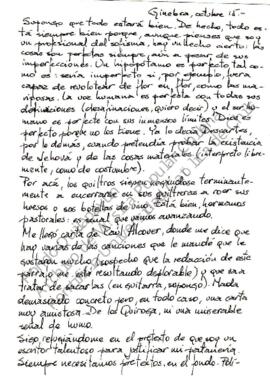 Ginebra, octubre 15.-
Supongo que todo estará bien. De hecho, todo es-
tá siempre bien porque, aunque pienses que soy
un profesional del sofisma, hay un hecho cierto: las
cosas son perfectas siempre, aún a pesar de sus
imperfecciones. Un hipopótamo es perfecto tal co-
mo es: sería imperfecto si, por ejemplo, fuera
capaz de revolotear de flor en flor como las ma-
riposas. La voz humana es perfecta con todas sus
definiciones (desafinaciones, quiero decir) y el ser hu-
mano es perfecto con sus inmensos límites. Dios es
perfecto porque no los tiene. Ya lo decía Descartes,
por lo demás, cuando pretendía probar la existencia
de Jehová y de las cosas materiales (interpreto libre-
mente, como de costumbre).
Por acá, los quiltros siguen negándose terminante-
mente a encerrarse en sus quiltreras a roer sus
huesos o sus botellas de vino. Está bien, hermanos
pastorales: es señal que vamos avanzando.
Me llegó carta de Raúl Alcover, donde me dice que
hay varias de las canciones que le mandé que le
gustaron mucho (sospecho que la redacción de este
párrafo me está resultando deplorable) y que va a
tratar de sacarlas (en guitarra, supongo). Nada
demasiado concreto pero, en todo caso, una carta
muy amistosa. De los Quiroga, ni una miserable
señal de humo.
Sigo refugiándome en el pretexto de que soy un
escritor talentoso para justificar mi patanería.
Siempre necesitamos pretextos, en el fondo.